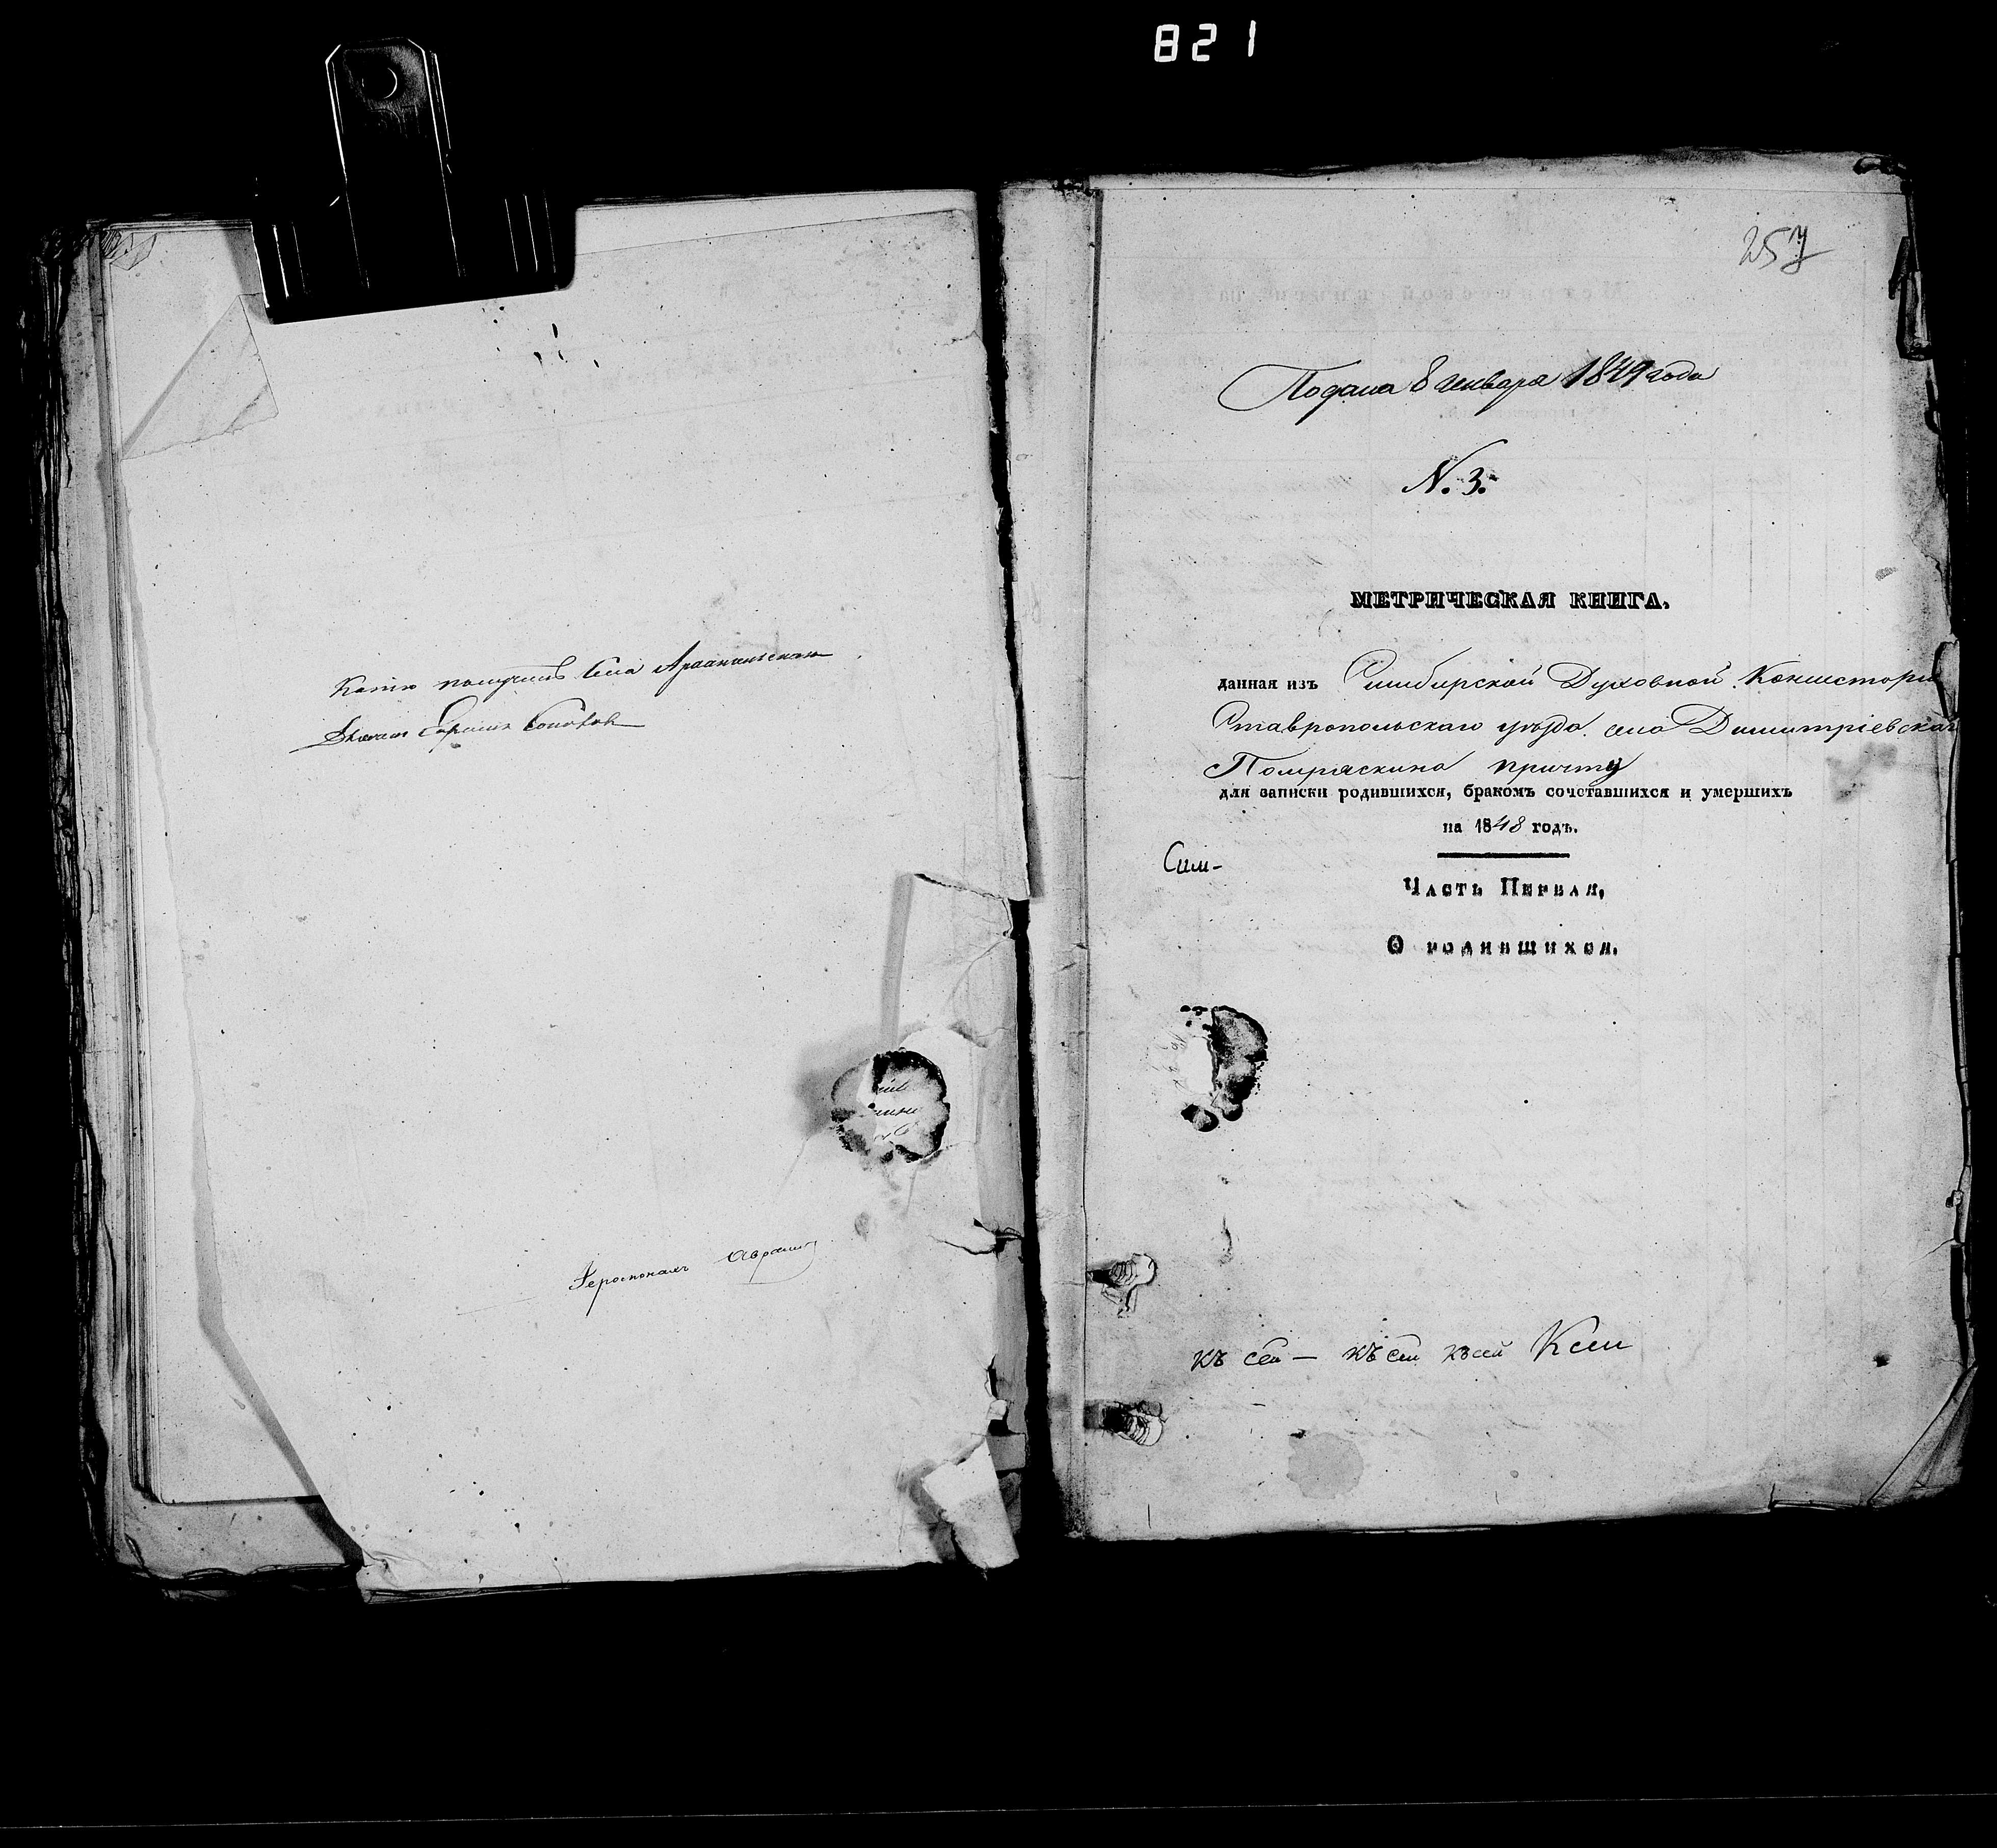 821
Копію получилъ села Архангельскаго
Іеромонахъ
257
Подана 8 генваря 1849 года
N. 3.
МЕТРИЧЕСКАЯ КНИГА,
данная изъ Симбирской Духовной Консисторіи
Ставропольскаго уѣзда села Димитріевскаго
Помряскина причту
для записки родившихся, бракомъ сочетавшихся и умершихъ
на 1848 годъ.
Сим-
Часть Первая,
О родившихся.
къ сей — къ сей къ сей К сей